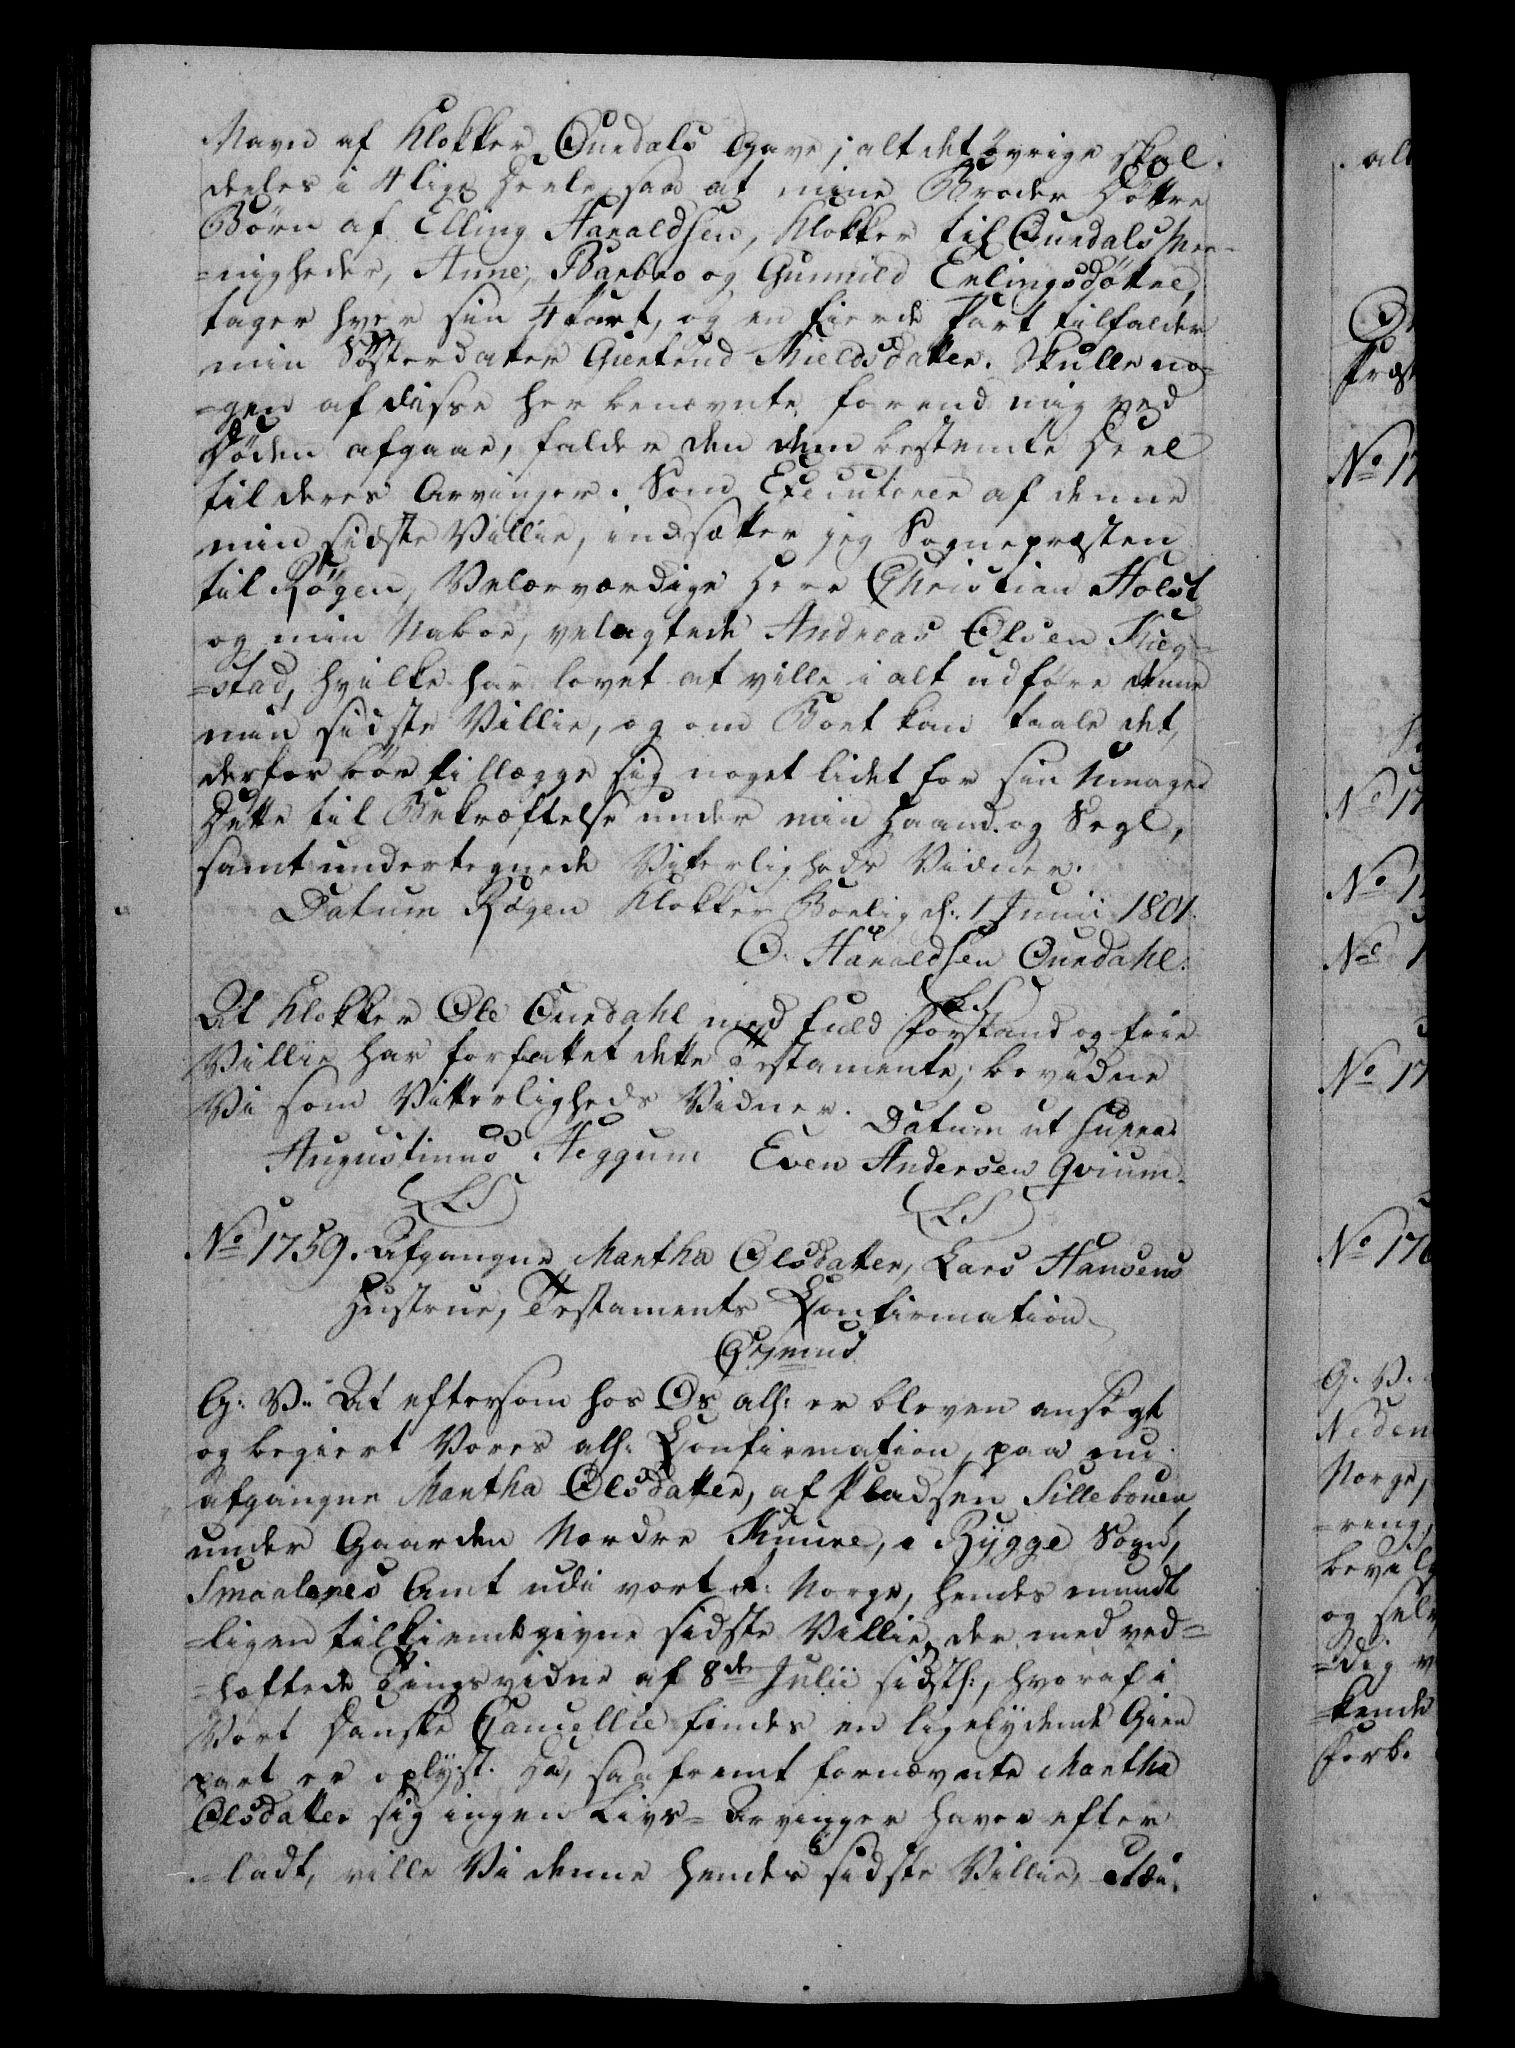 Navn af Klokker Ourdals Gave; alt det øvrige skal
deeles i 4 lige Deele, saa at mine Broder Døttre
Børn af Elling Haraldsen, Klokker til Ourdals Me-
=nigheder, Anne, Barbro og Gunnild Erlingsdøttre,
tager hver sin 4 Part, og en fierde Part tilfalder
min Søsterdater Giertrud Nielsdatter. Skulle no=
=gen af disse her benævnte forend mig ved
Døden afgaae, falder den dem bestemte Deel
til deres Arvinger. Som Executorer af denne
min sidste Villie, indsætter jeg Sognepræsten
til Røgen, Velærværdige Herr Christian Holst
og min Naboe, velagtede Andreas Olsen Kieg=
=stad, hvilke har lovet at ville i alt udføre denne
min sidste Villie, og om Boet kan taale det,
derfor bør tillægge sig noget lidet for sin Umage.
Dette til Bekræftelse under min Haand og Segl,
samt undertegnede Viterligheds Vidner.
Datum Røgen Klokker Boelig d: 1 Junii 1801.
O. Haraldsen Ourdahl.
(LS)
At Klokker Ole Ourdahl med fuld Forstand og frie
Villie har forfattet dette Testamente, bevidne
Vi som Vitterligheds Vidner. Datum ut supra.
Augustinus Heggum Even Andersen Qvium.
(LS) (LS)
No 1759. Afgangne Martha Olsdatter, Lars Hansens
Hustrue, Testaments Confirmation
Qvæmus
G: V: At eftersom hos Os alh: er bleven ansøgt
og begiert Vores alh: Confirmation, paa nu
afgangne Martha Olsdatter, af Pladsen Sillebouen
under Gaarden Nordre Kuure, i Rygge Sogn,
Smaalenes Amt udi vort R: Norge, hendes mundt
=ligen tilkiendegivne sidste Villie, der med ved=
=hæftede Tingsvidne af 8de Julii sidstl:, hvoraf i
Vort Danske Cancellie findes en ligelydende Gien
part er oplyst. Da, saafremt fornævnte Martha
Olsdatter sig ingen Livs=Arvinger haver efter
=ladt, ville Vi denne hendes sidste Villie,
alt
Præst
No 17
No 17
No 17
No 1
No 17
No 176
G. V.
Neden
Norge,
=ning,
bevilg
og selv
=dig
=kende
Forb.